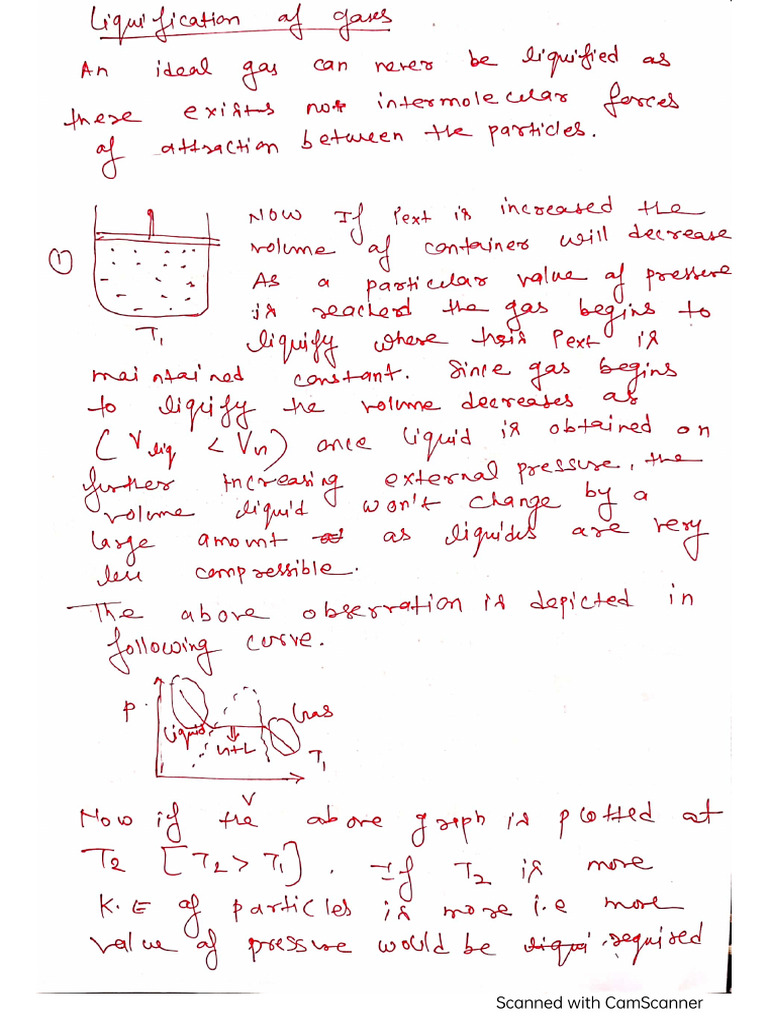 Liquification of gases
An ideal gas can never be liquified as
there exists not intermolecular forces
of attraction between the particles.
① T1
Now If Pext is increased the
volume of container will decrease
As a particular value of pressure
is reached the gas begins to
liquify where this Pext is
maintained constant. Since gas begins
to liquify the volume decreases as
(Vliq < Vn) once liquid is obtained on
further increasing external pressure, the
volume liquid won't change by a
large amount as liquides are very
less compressible.
The above observation is depicted in
following curve.
P
Gas
Liquid
T1
V
Now if the above graph is plotted at
T2 [T2 > T1]. If T2 is more
K.E of particles is more i.e more
value of pressure would be required
Scanned with CamScanner